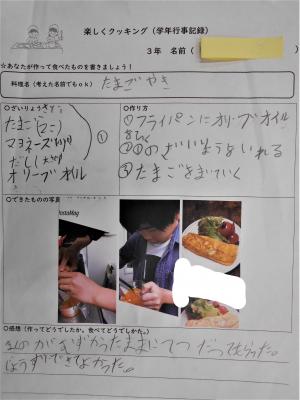 楽しくクッキング（学年行事記録）
３年　名前（
☆あなたが作って食べたものを書きましょう！
料理名（考えた名前でもｏｋ）
たまごやき
○ざいりょう
たまご(2こ)
マヨネーズ
だし
オリーブオイル
①
○作り方
①フライパンにオリーブオイル
をひく
②①のざいりょうをいれる
③たまごをまいていく
○できたものの写真
○感想（作ってどうでしたか。食べてどうでしたか。）
まくのがむずかったたまにてつだってもらった。
じょうずにできてよかった。